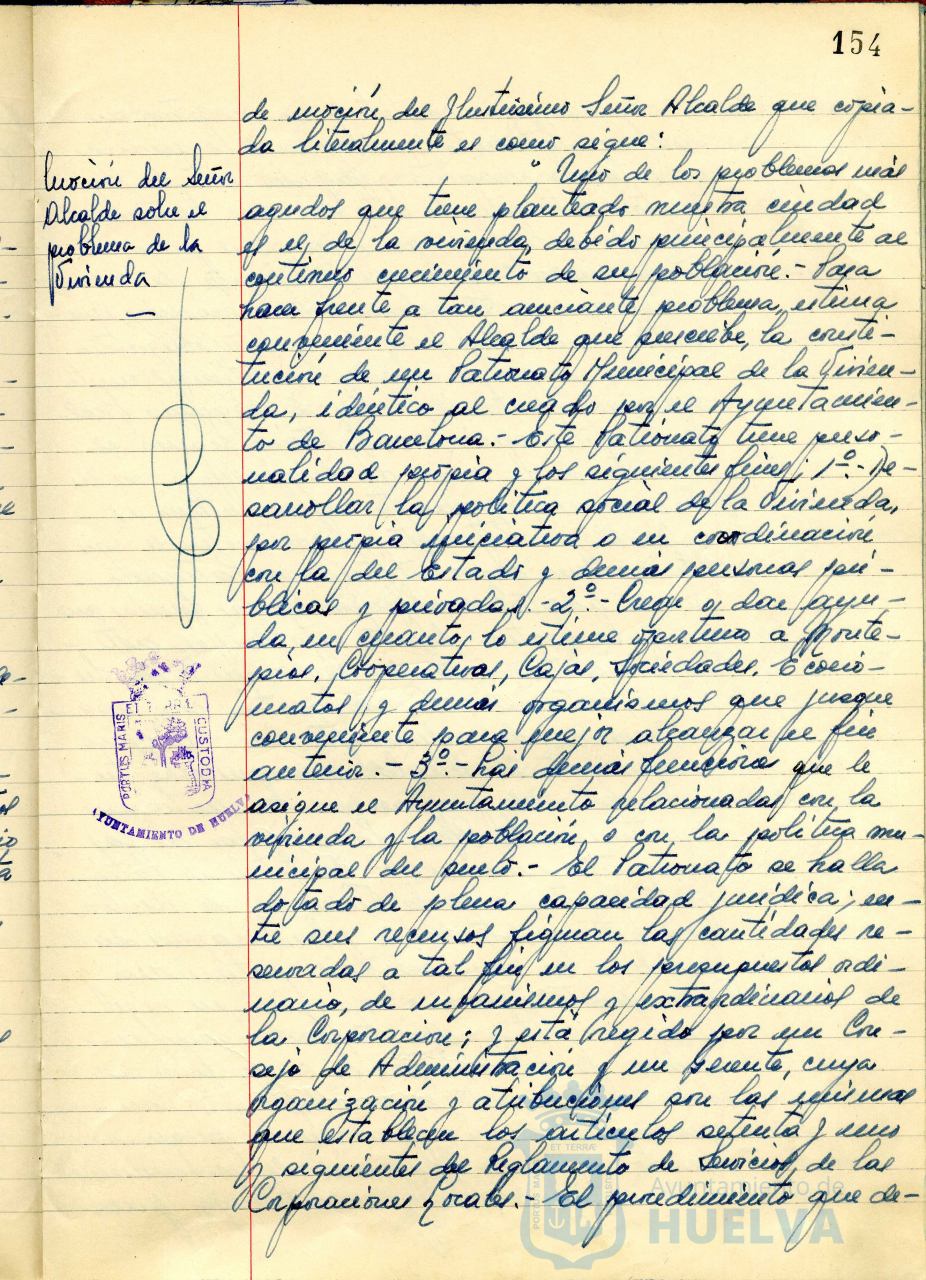 154
de moción del Ilustrísimo Señor Alcalde que copia-
da literalmente es como sigue:
Moción del Señor
Alcalde sobre el
problema de la
Vivienda
" Uno de los problemas más
agudos que tiene planteado nuestra ciudad
es el de la vivienda, debido principalmente al
continuo crecimiento de su población.- Para
hacer frente a tan acuciante problema, estima
conveniente el Alcalde que suscribe, la consti-
tución de un Patronato Municipal de la Vivien-
da, idéntico al creado por el Ayuntamien-
to de Barcelona.- Este Patronato tiene perso-
nalidad propia y los siguientes fines; 1º.- De-
sarrollar la política social de la Vivienda,
por propia iniciativa o en coordinación
con la del Estado y demás personas pú-
blicas y privadas.- 2º.- Crear o dar ayu-
da, en cuanto lo estime oportuno a Monte-
pios, Cooperativas, Cajas, Sociedades, Econo-
matos y demás organismos que juzgue
conveniente para mejor alcanzar el fin
anterior.- 3º.- Las demás funciones que le
asigne el Ayuntamiento relacionadas con la
vivienda y la población o con la política mu-
nicipal del suelo.- El Patronato se halla
dotado de plena capacidad jurídica; en-
tre sus recursos figuran las cantidades re-
servadas a tal fin en los presupuestos ordi-
nario, de urbanismos y extraordinarios de
la Corporación; y está regido por un Con-
sejo de Administración y un gerente, cuya
organización y atribuciones son las mismas
que establecen los artículos setenta y uno
y siguientes del Reglamento de Servicios de las
Corporaciones Locales.- El procedimiento que de-
PORTUS MARIS
CUSTODIA
AYUNTAMIENTO DE HUELVA
ET TERRÆ
Ayuntamiento de
HUELVA